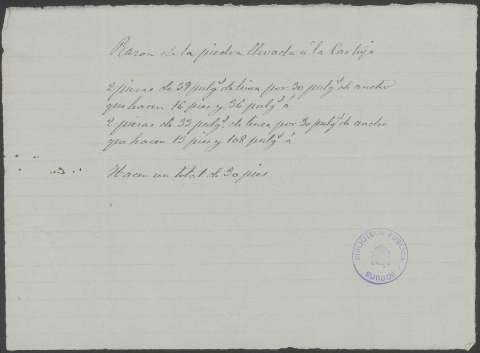 Razon de la piedra llevada á la Cartuja
2 piezas de 39 pulg.s de linea por 30 pulg.s de ancho
que hacen 16 pies y 36 pulg.s
2 piezas de 33 pulg.s de linea por 30 pulg.s de ancho
que hacen 13 pies y 108 pulg.s
Hacen un total de 30 pies
BIBLIOTECA PUBLICA
BURGOS